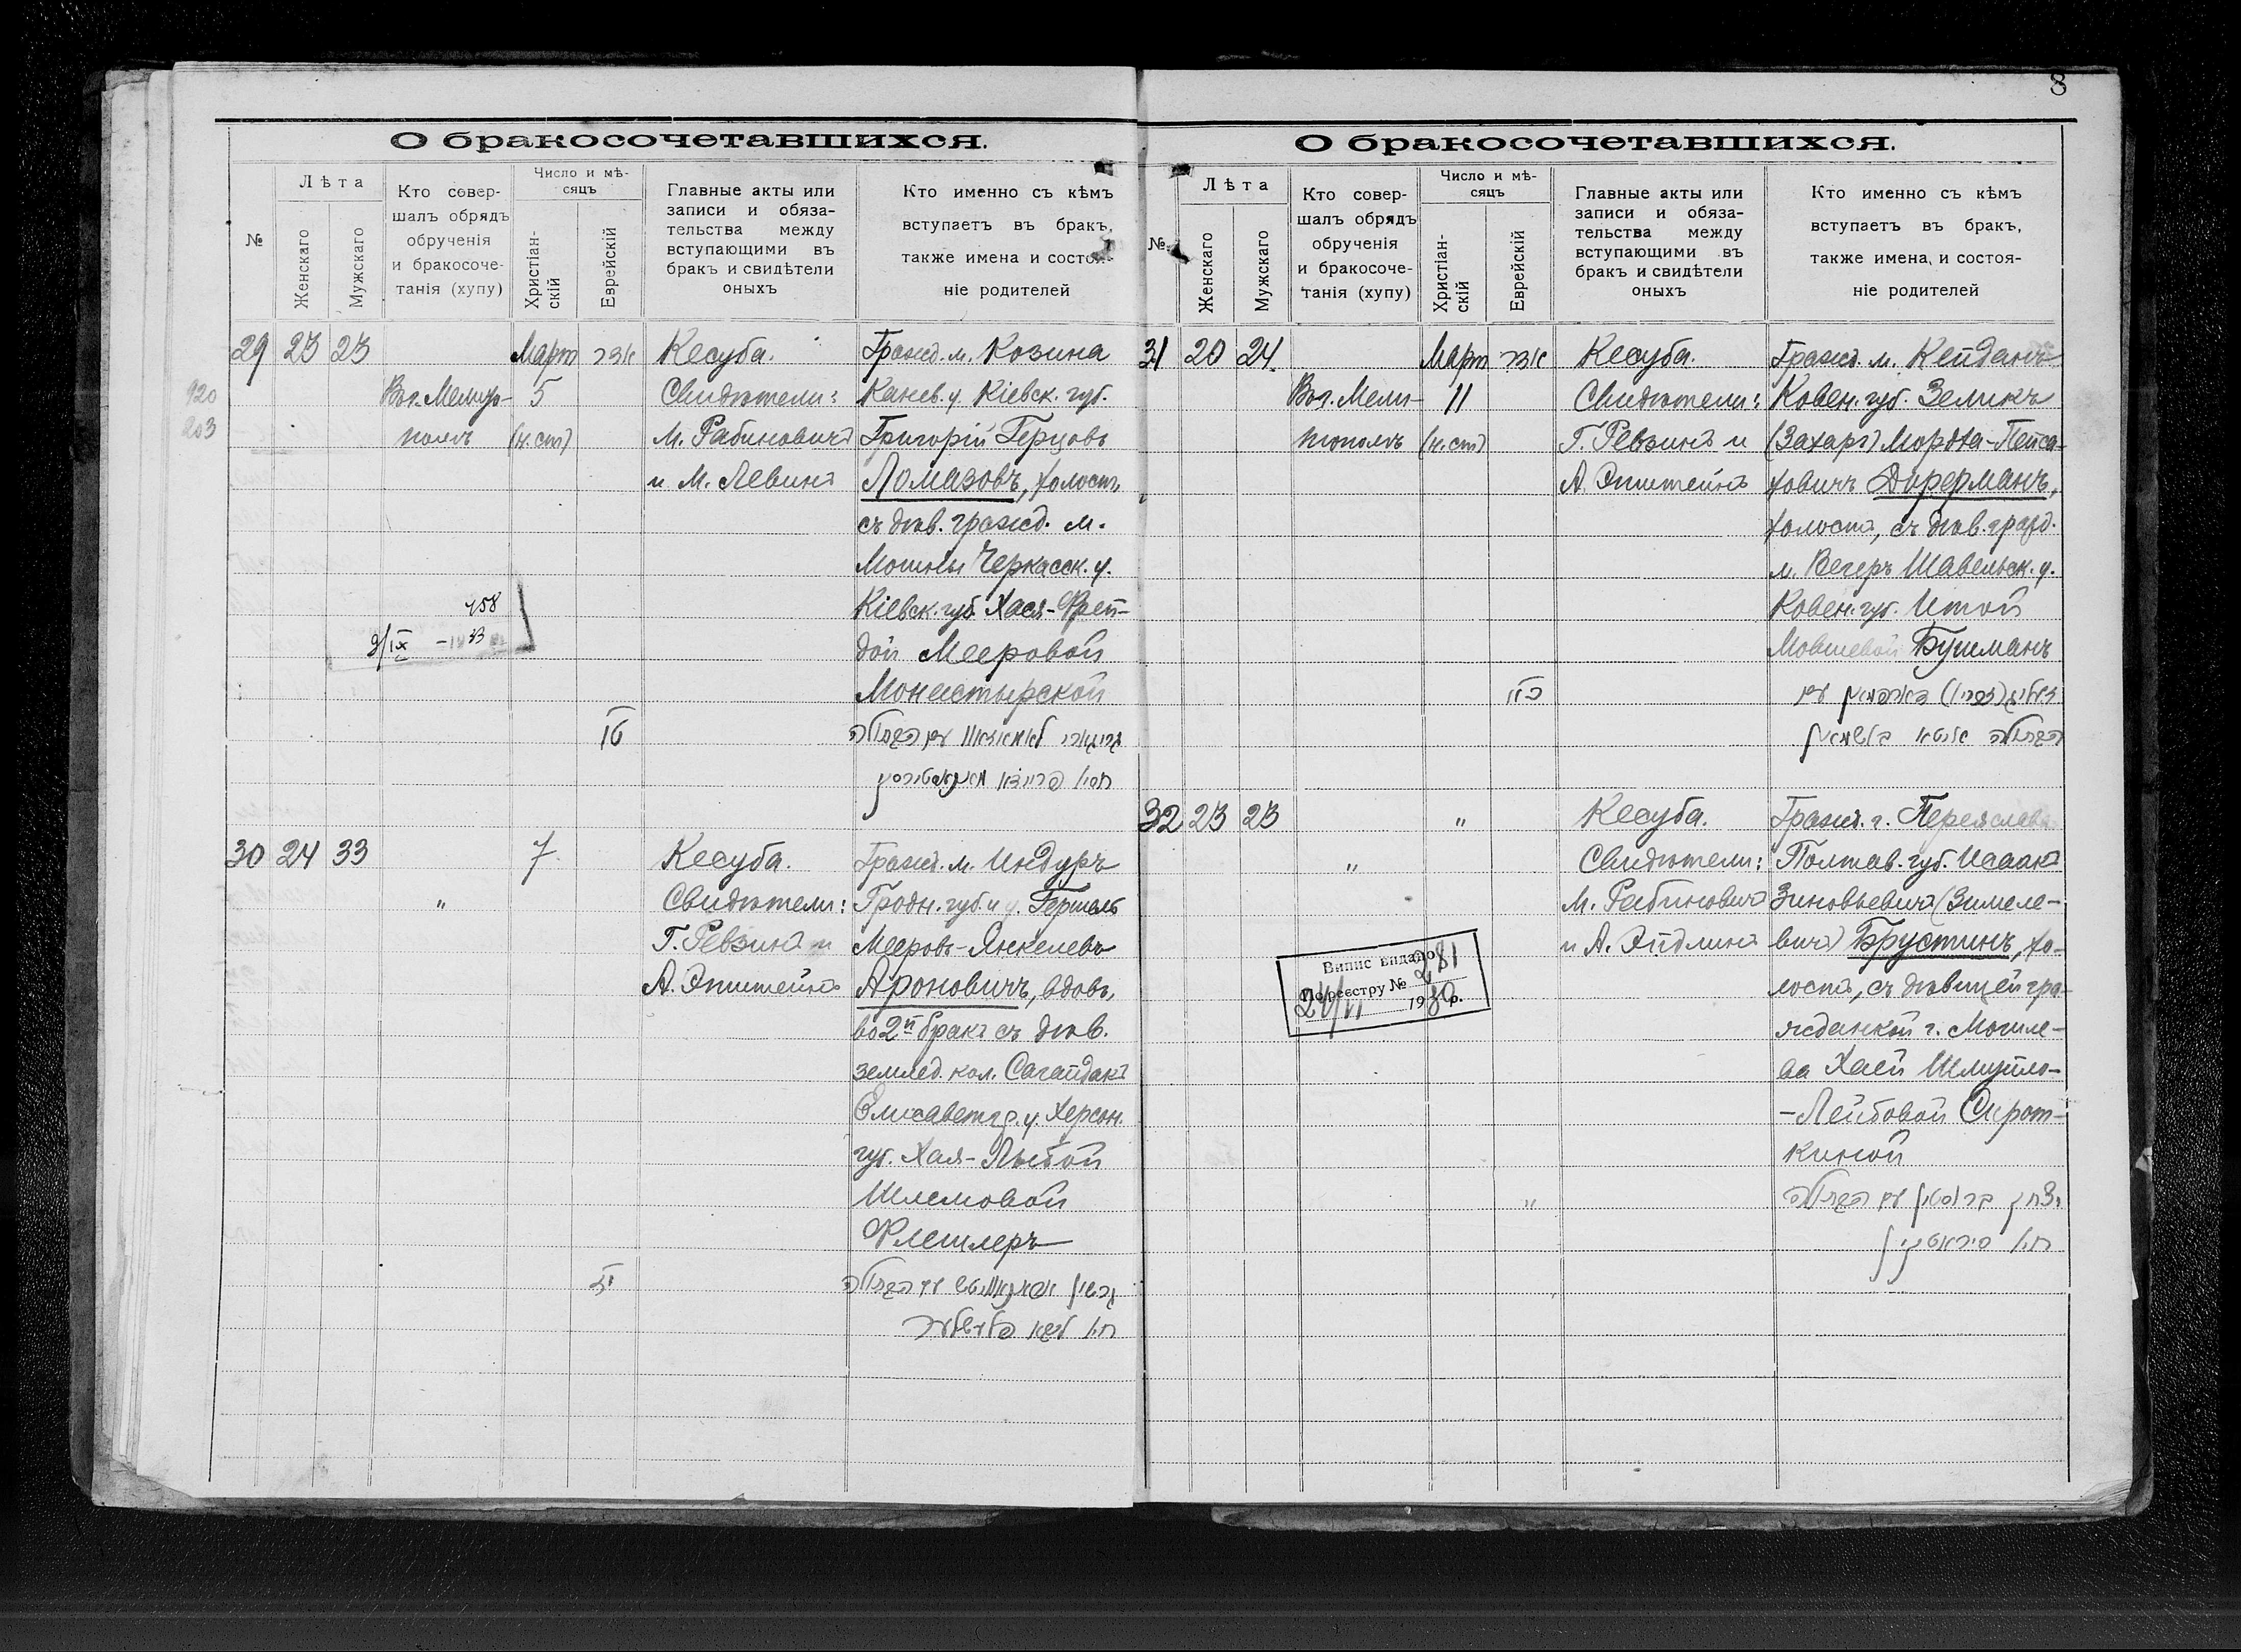 8
О бракосочетавшихся.
№
Лѣта
Женскаго
Мужскаго
Кто совер-
шалъ обрядъ
обрученія
и бракосоче-
танія (хупу)
Число и мѣ-
сяцъ
Христіан-
скій
Еврейскій
Главные акты или
записи и обяза-
тельства между
вступающими въ
бракъ и свидѣтели
оныхъ
Кто именно съ кѣмъ
вступаетъ въ бракъ,
также имена и состоя-
ніе родителей
29 23 23
Въ г. Мелито-
полѣ
Март
5
(н.ст)
אדר
Кесуба.
Свидѣтели:
М. Рабиновичъ
и М. Левинъ
Гражд. м. Козина
Канев. у. Кіевск. губ.
Григорій Герцовъ
Ломазовъ, холостъ,
съ дѣв. гражд. м.
Мошны Черкасск. у.
Кіевск. губ. Хася-Фрей-
дой Мееровой
Монастырской
920
203
458
9/IX
30 24 33
"
7
Кесуба.
Свидѣтели:
Г. Ревзинъ и
А. Эпштейнъ
Гражд. м. Индуръ
Гродн. губ. и у. Гершель
Мееровъ-Янкелевъ
Ароновичъ, вдовъ,
во 2й бракъ съ дѣв.
землед. кол. Сагайдакъ
Елисаветгр. у. Херсон.
губ. Хая-Лыбой
Шлемовой
Флешлеръ
О бракосочетавшихся.
№
Лѣта
Женскаго
Мужскаго
Кто совер-
шалъ обрядъ
обрученія
и бракосоче-
танія (хупу)
Число и мѣ-
сяцъ
Христіан-
скій
Еврейскій
Главные акты или
записи и обяза-
тельства между
вступающими въ
бракъ и свидѣтели
оныхъ
Кто именно съ кѣмъ
вступаетъ въ бракъ,
также имена, и состоя-
ніе родителей
31 20 24
Въ г. Мели-
тополѣ
Март
11
(н.ст)
אדר
Кесуба.
Свидѣтели:
Г. Ревзинъ и
А. Эпштейнъ
Гражд. м. Кейданъ
Ковен. губ. Зеликъ
(Захаръ) Мордха-Пейса-
ховичъ Дирерманъ,
холостъ, съ дѣв. гражд.
м. Вегеръ Шавельск. у.
Ковен. губ. Итой
Мовшевой Бушманъ
32 23 23
"
"
"
Кесуба.
Свидѣтели:
М. Рабиновичъ
и А. Эйдлинъ
Гражд. г. Переяслава
Полтав. губ. Исаакъ
Зиновьевичъ (Зимеле-
вичъ) Брустинъ, хо-
лостъ, съ дѣвицей гра-
жданкой г. Могиле-
ва Хаей Шмуйло-
-Лейбовой Сирот-
киной
Випис видано
По реєстру № 281
24/VI 1930 р.